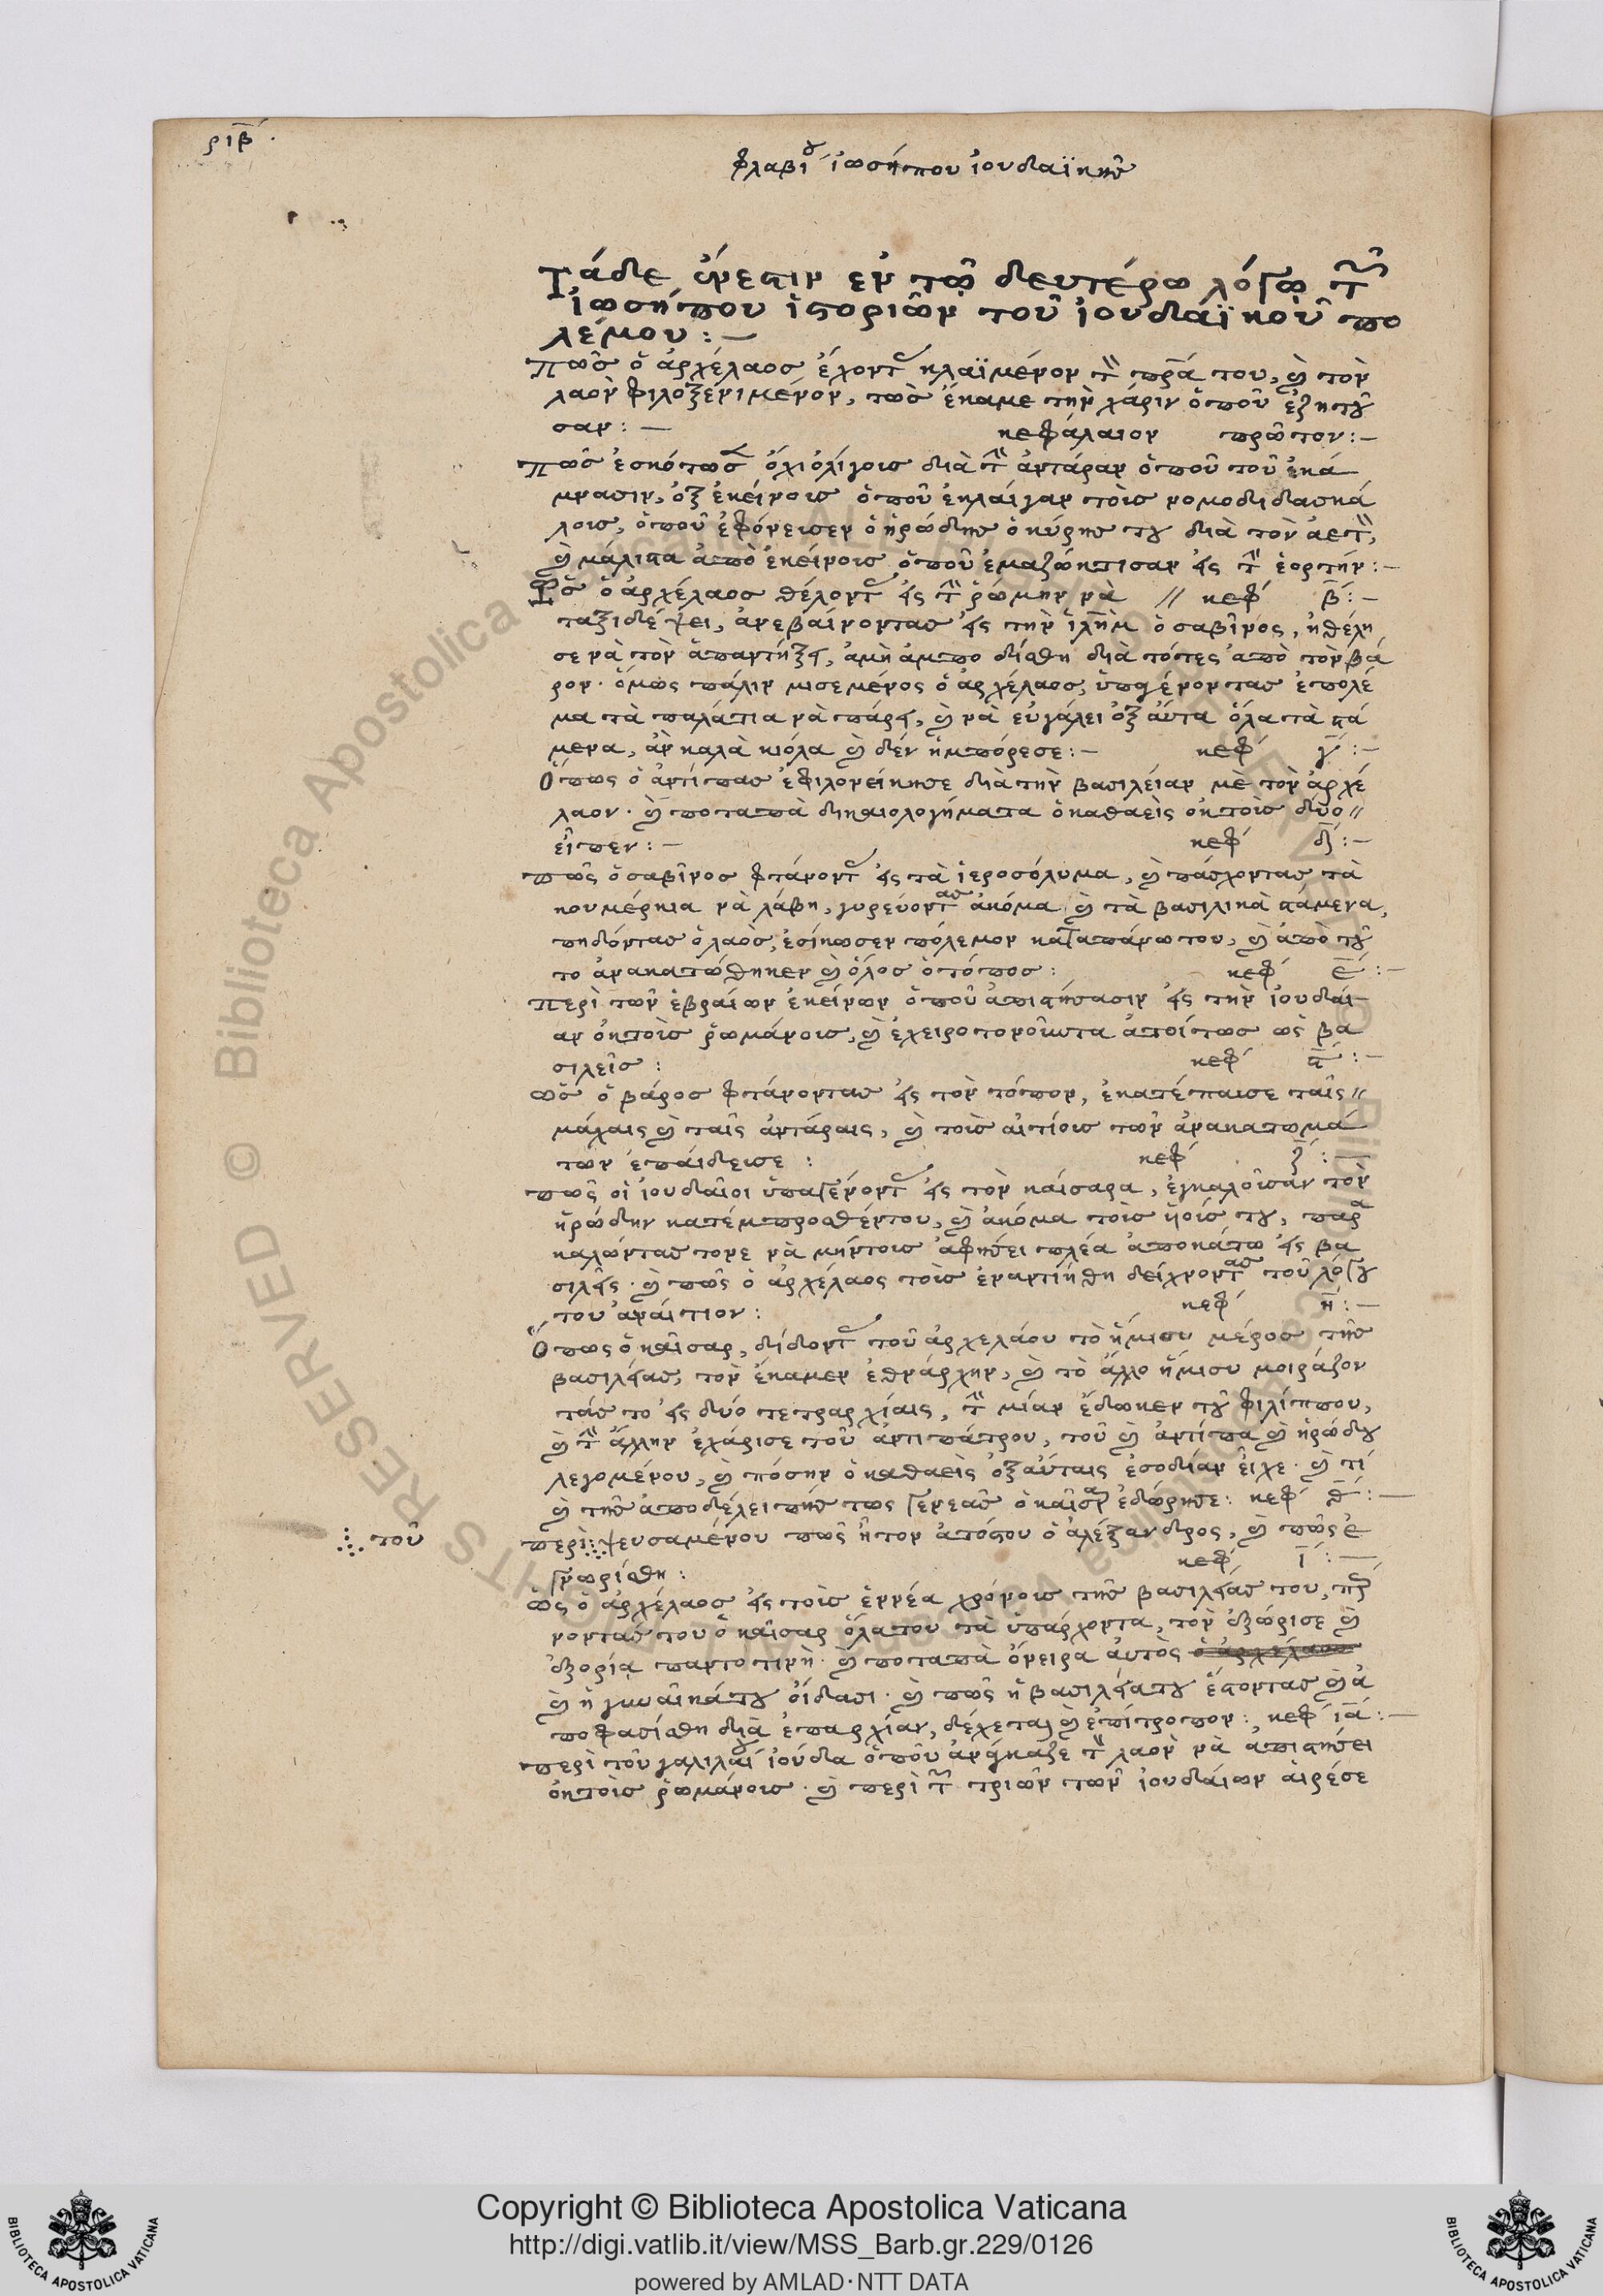 ριβ.
φλαβίου ἰωσήπου ἰουδαϊκῆς
Τάδε ἔνεστιν ἐν τῷ δευτέρῳ λόγῳ τῶν
ἰωσήπου ἱστοριῶν τοῦ ἰουδαϊκοῦ πο
λέμου:—
πῶς ὁ ἀρχέλαος ἔχοντας κλαϊμένον τὸν πρᾶ του, καὶ τὸν
λαὸν φιλοξενιμένον, τῶς ἔκαμε τὴν χάριν ὁποῦ ἐζητοῦ
σαν:— κεφάλαιον πρῶτον:—
πῶς ἐσκότωσε ὄχι ὀλίγοις διὰ τὴν ἀντάραν ὁποῦ τοῦ ἐκά
μνασιν, ὀξ ἐκείνοις ὁποῦ ἐκλαίγαν τοῖς νομοδιδασκά
λοις, ὁποῦ ἐφόνεισεν ὁ ἡρώδης ὁ κύρης του διὰ τὸν ἀετόν,
καὶ μάλιστα ἀπὸ ἐκείνοις ὁποῦ ἐμαζώκτισαν εἰς τὴν ἑορτήν:—
Πῶς ὁ ἀρχέλαος θέλοντας εἰς τὴν ῥώμην νὰ // κεφ β:—
ταξιδέψει, ἀνεβαίνοντας εἰς τὴν ἱλὴμ ὁ σαβῖνος, ἠθέλη
σε νὰ τὸν ἀπαντήξει, ἀμὴ ἀμποδίσθη διὰ τότες ἀπὸ τὸν βά
ρον. ὅμως πάλιν μισεμένος ὁ ἀρχέλαος, ὑπαγένοντας ἐπολέ
μα τὰ παλάτια νὰ πάρει, καὶ νὰ εὐγάλει ὀξ αὖτα ὅλα τὰ στά
μενα, ἂν καλὰ κιόλα καὶ δέν ἠμπόρεσε:— κεφ γ:—
Ὅπως ὁ ἀντίπας ἐφιλονείκησε διὰ τὴν βασιλείαν μὲ τὸν ἀρχέ
λαον. καὶ ποταπὰ δικαιολογήματα ὁ καθαεὶς ὀκ τοῖς δύο //
εἶπεν:— κεφ δ:—
πῶς ὁ σαβῖνος φτάνοντας εἰς τὰ ἱεροσόλυμα, καὶ πάσχοντας τὰ
κουμέρκια νὰ λάβη, γυρεύοντας ἀκόμα καὶ τὰ βασιλικὰ στάμενα,
πηδόντας ὁ λαὸς, ἐσίκωσεν πόλεμον κατὰ πάνω του, καὶ ἀπὸ τοῦ
το ἀνακατώθηκεν καὶ ὅλος ὁ τόπος: κεφ ε:—
περὶ τῶν ἑβραίων ἐκείνων ὁποῦ ἀπιστήσασιν εἰς τὴν ἰουδαί
αν ὀκ τοῖς ῥωμάνοις, καὶ ἐχειροτονοῖωτα ἀποίτως ὡς βα
σιλεῖς: κεφ ϛ:—
πῶς ὁ βάρος φτάνοντας εἰς τὸν τόπον, ἐκατέπαισε ταῖς //
μάχαις καὶ ταῖς ἀντάραις, καὶ τοῖς αἰτίοις τῶν ἀνακατωμά
των ἐπαίδεισε: κεφ ζ:—
πῶς οἱ ἰουδαῖοι ὑπαγένοντας εἰς τὸν καίσαρα, ἐγκαλοῖσαν τὸν
ἡρώδην κατέμπροσθέντου, καὶ ἀκόμα τοῖς ὑοίς του, παρα
καλώντας τονε νὰ μήντοις ἀφήσει πλέα ἀποκάτω εἰς βα
σιλεῖς. καὶ πῶς ὁ ἀρχέλαος τοῖς ἐναντιήθη δείχνοντας τοῦ λόγου
του ἀναίτιον: κεφ η:—
Ὅπως ὁ καῖσαρ, δίδοντας τοῦ ἀρχελάου τὸ ἥμισυ μέρος τῆς
βασιλείας, τὸν ἔκαμεν ἐθνάρχην, καὶ τὸ ἄλλο ἥμισυ μοιράζον
τάς το εἰς δυό τετραρχίαις, τὴν μίαν ἔδωκεν τοῦ φιλίππου,
καὶ τὴν ἄλλην ἐχάρισε τοῦ ἀντιπάτρου, τοῦ καὶ ἀντίπα καὶ ἡρώδου
λεγομένου, καὶ πόσην ὁ καθαεὶς ὀξαύταις ἐσοδίαν εἶχε. καὶ τί
καὶ τῆς ἀποδέλειπῆς τως γενεᾶς ὁ καῖσαρ ἐδώρησε: κεφ θ:—
τοῦ
περὶ ψευσαμένου πῶς ἦτον ἀτόστου ὁ ἀλέξανδρος, καὶ πῶς ἐ
γνωρίσθη: κεφ ι:—
πῶς ὁ ἀρχέλαος εἰς τοῖς ἐννέα χρόνοις τῆς βασιλείας του, πέρ
νοντάς του ὁ καῖσαρ ὅλατου τὰ ὑπάρχοντα, τὸν ἐξώρισε καὶ
ἐξορία παντοτινή. καὶ ποταπὰ ὄνειρα αὐτὸς ὁ ἀρχέλαος
καὶ ἡ γυναῖκάτου οἴδασι. καὶ πῶς ἡ βασιλείατου ἔστοντας καὶ ἀ
ποφασίσθη διὰ ἐπαρχίαν, δέχεται καὶ ἐπίτροπον: κεφ ια:—
περὶ τοῦ γαλιλαίου ἰούδα ὁποῦ ἀνάγκαζε τὸν λαὸν νὰ ἀπιστήσει
ὀκ τοῖς ῥωμάνοις. καὶ περὶ τῶν τριῶν τῶν ἰουδαίων αἱρέσε
Copyright © Biblioteca Apostolica Vaticana
http://digi.vatlib.it/view/MSS_Barb.gr.229/0126
powered by AMLAD·NTT DATA